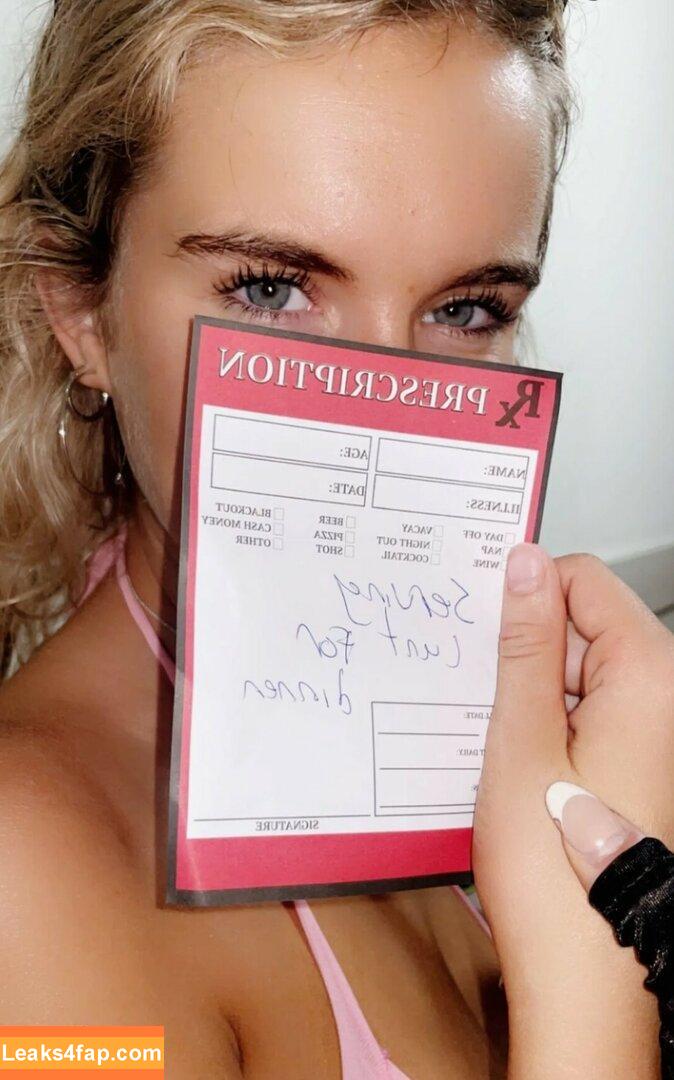 Rx PRESCRIPTION
NAME: AGE:
ILLNESS: DATE:
DAY OFF VACAY BEER BLACKOUT
NAP NIGHT OUT PIZZA CASH MONEY
WINE COCKTAIL SHOT OTHER
Serving
Cunt For
dinner
DATE:
DAILY:
SIGNATURE
Leaks4fap.com